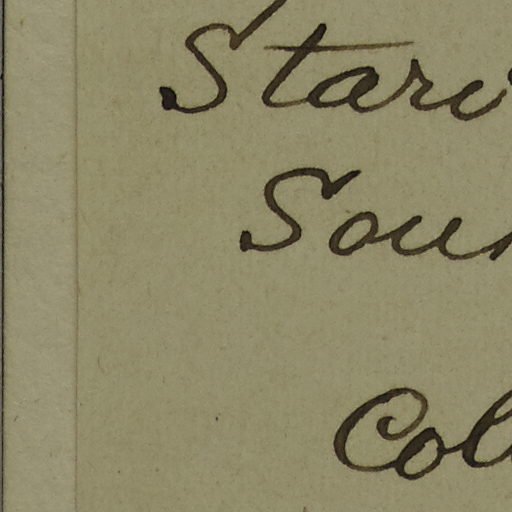 Star
Sou
Col